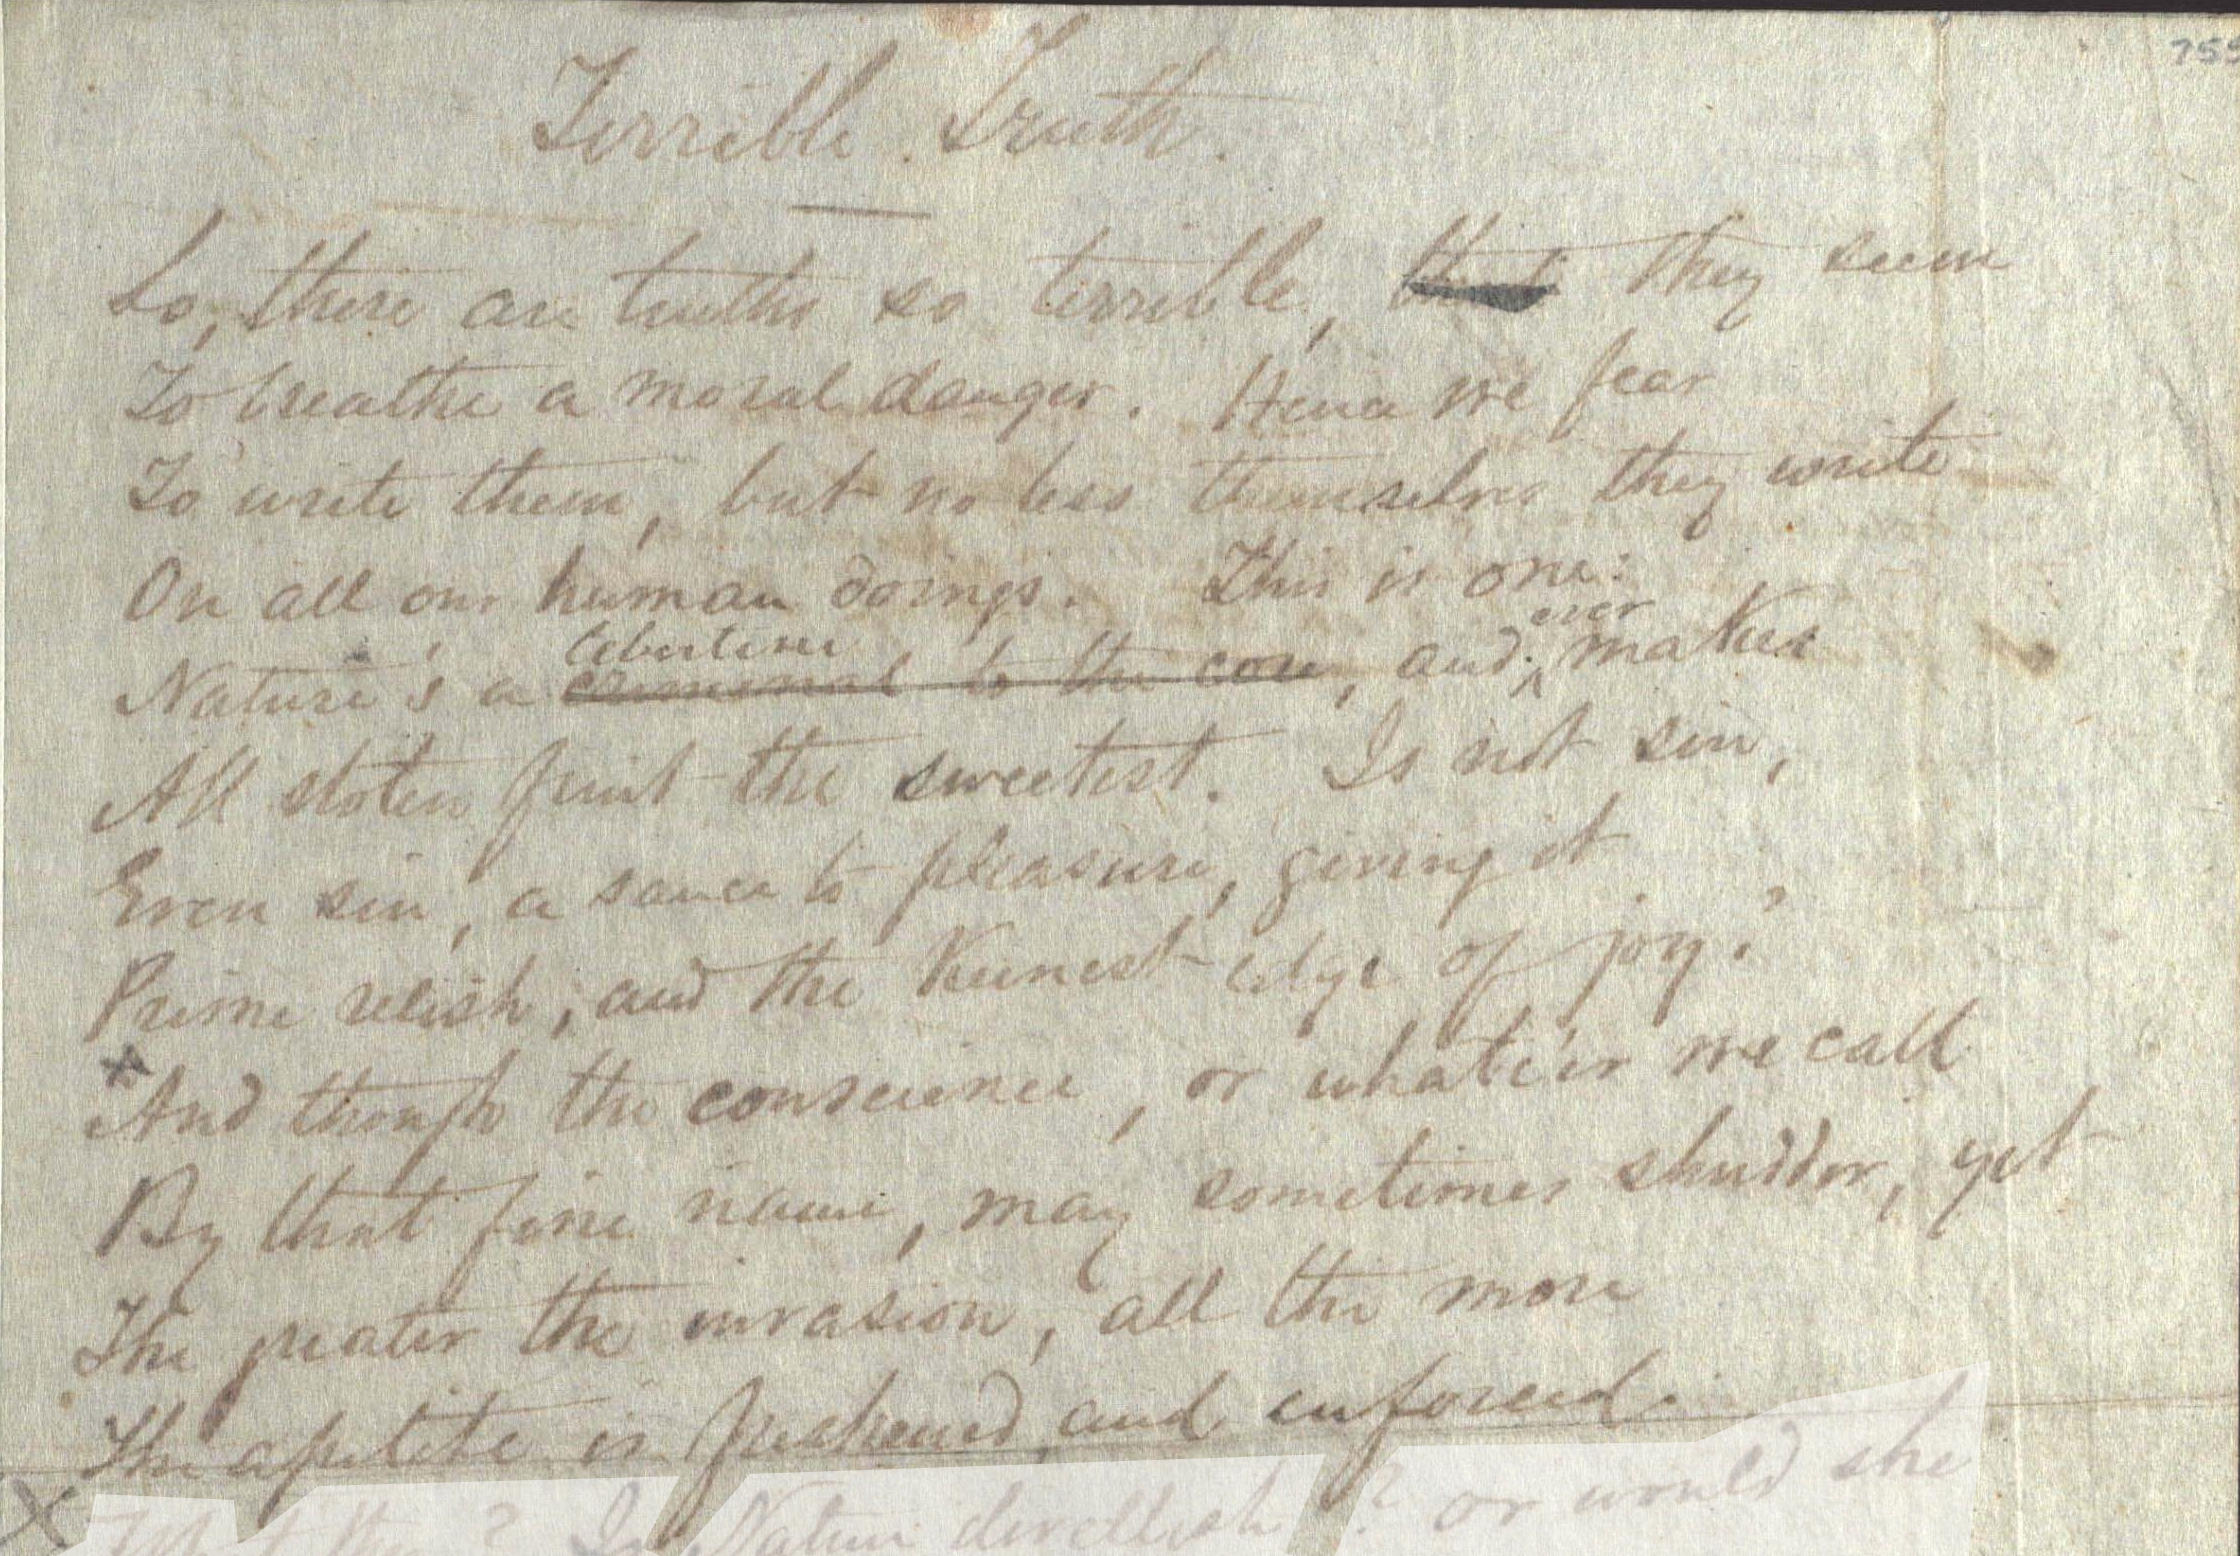 755
Terrible Truth.
Lo, there are truths so terrible, that they seem
To breathe a moral danger. Hence we fear
To write them, but no less themselves they write
On all our human doings. This is one:
libertine ever
Nature's a criminal to the core, and makes
All stolen fruit the sweetest. Is not sin,
Even sin, a sauce to pleasure, giving it
Prime relish, and the keenest edge of joy?
And though the conscience, or whate'er we call
By that fine name, may sometimes shudder, yet
The greater the invasion, all the more
The apetite is freshened and enforced.
What then? Is Nature devillish? or would she